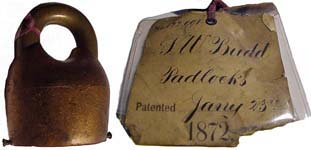 J W Budd
Padlocks
Patented Jany 23rd
1872